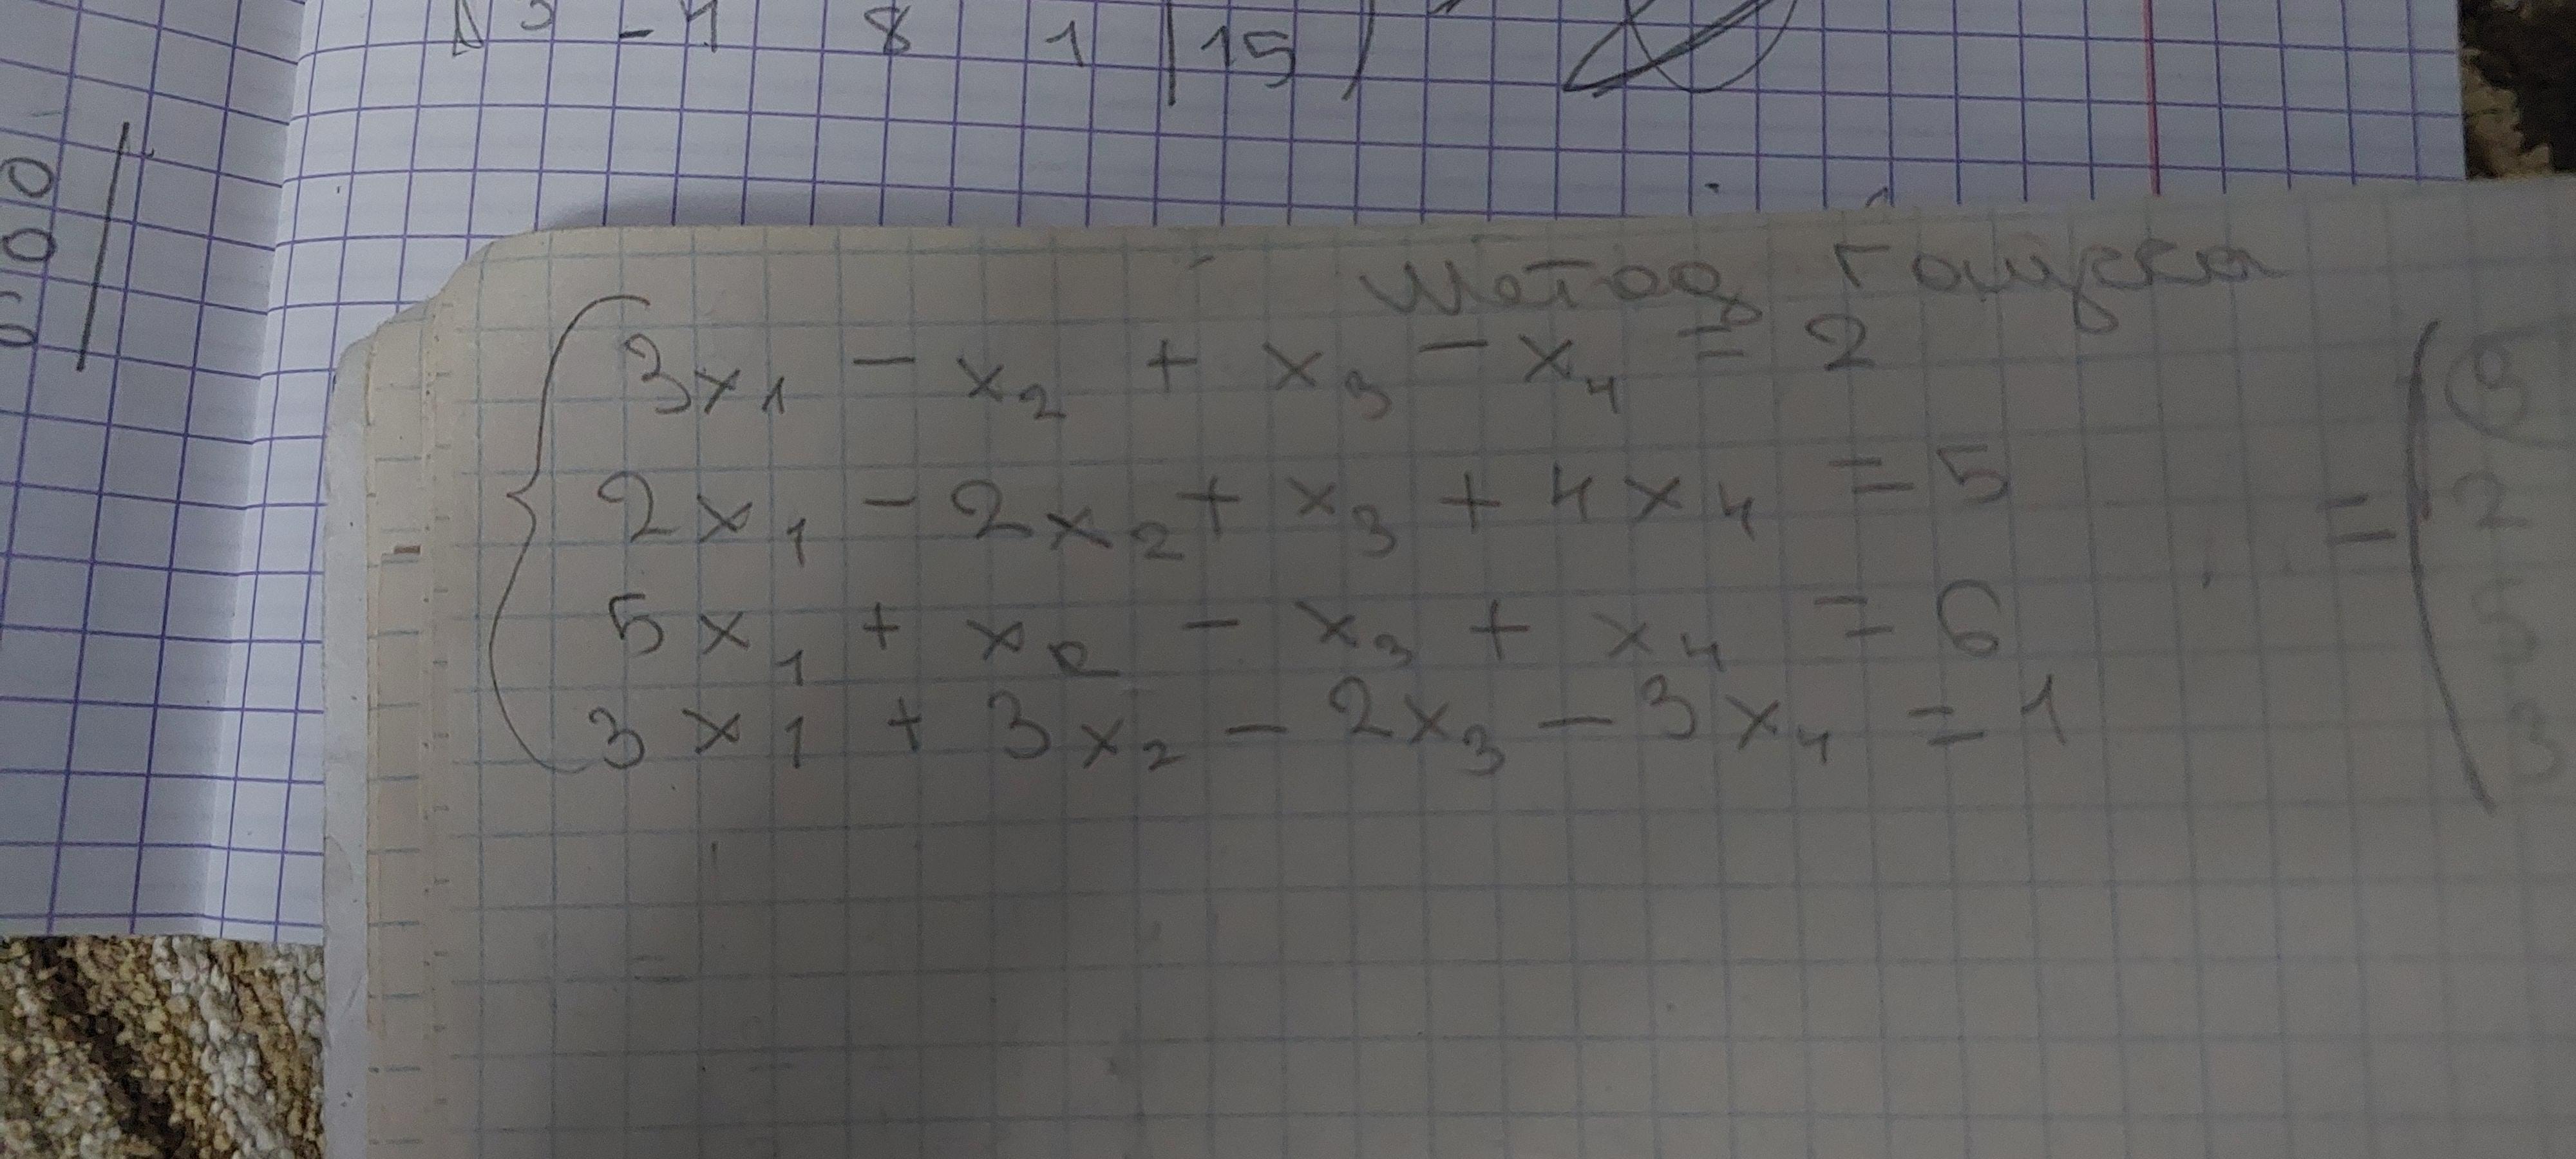 -4 8 1 | 15 )
0
0
Метод Гаусса
3x₁ - x₂ + x₃ - x₄ = 2
2x₁ - 2x₂ + x₃ + 4x₄ = 5
5x₁ + x₂ - x₃ + x₄ = 6
3x₁ + 3x₂ - 2x₃ - 3x₄ = 1
= (
2
5
3